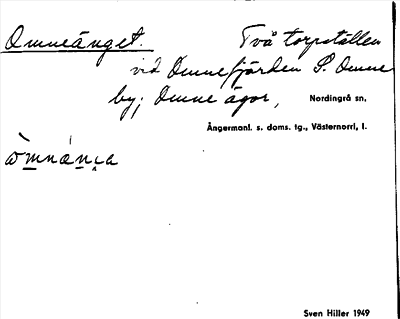 Omneänget. Två torpställen
vid Omnefjärden S. Omne
by; Omne ägor, Nordingrå sn,
Ångermanl. s. doms. tg., Västernorrl, l.
Sven Hiller 1949